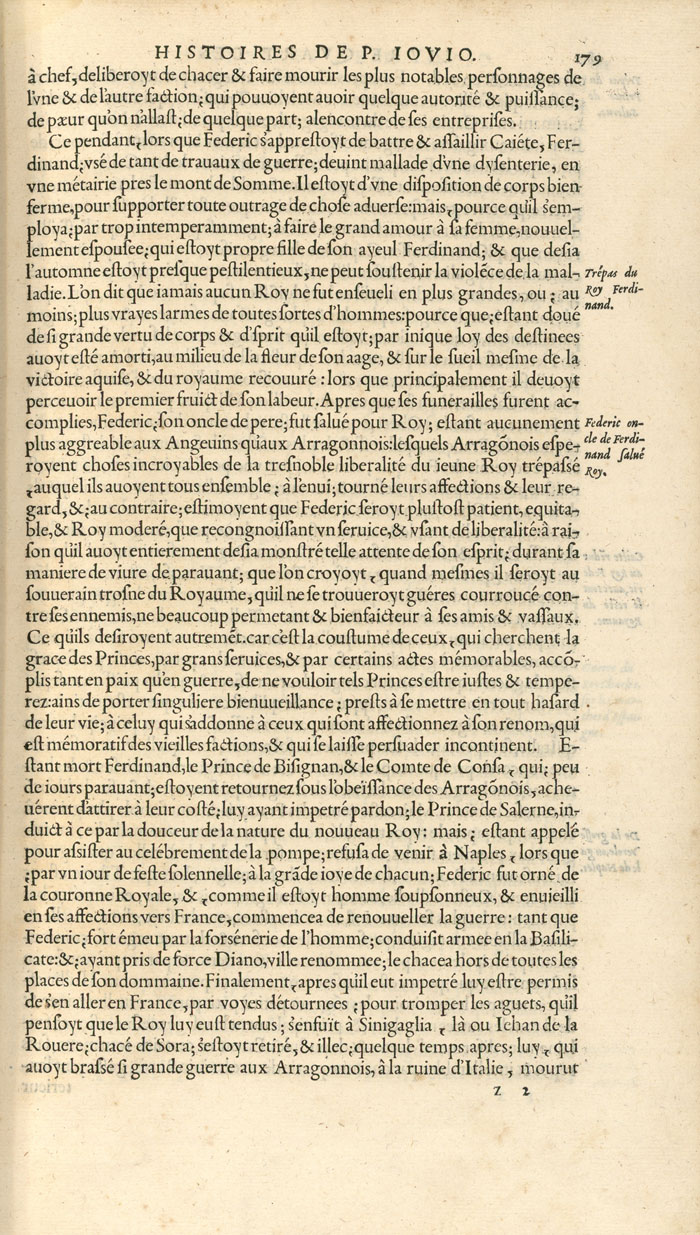 HISTOIRES DE P. IOVIO. 179
à chef, deliberoyt de chacer & faire mourir les plus notables personnages de
l'vne & de l'autre faction; qui pouuoyent auoir quelque autorité & puissance;
de pæur qu'on n'allast; de quelque part; alencontre de ses entreprises.
Ce pendant, lors que Federic s'apprestoyt de battre & assaillir Caiéte, Fer-
dinand; vsé de tant de trauaux de guerre; deuint mallade d'vne dysenterie, en
vne métairie pres le mont de Somme. Il estoyt d'vne disposition de corps bien
ferme, pour supporter toute outrage de chose aduerse: mais, pource qu'il s'em-
ploya; par trop intemperamment; à faire le grand amour à sa femme, nouuel-
lement espousee; qui estoyt propre fille de son ayeul Ferdinand; & que desia
l'automne estoyt presque pestilentieux, ne peut soustenir la violéce de la mal-
ladie. L'on dit que iamais aucun Roy ne fut enseueli en plus grandes, ou; au
moins; plus vrayes larmes de toutes sortes d'hommes: pource que; estant doué
de si grande vertu de corps & d'sprit qu'il estoyt; par inique loy des destinees
auoyt esté amorti, au milieu de la fleur de son aage, & sur le sueil mesme de la
victoire aquise, & du royaume recouuré: lors que principalement il deuoyt
perceuoir le premier fruict de son labeur. Apres que ses funerailles furent ac-
complies, Federic; son oncle de pere; fut salué pour Roy; estant aucunement
plus aggreable aux Angeuins qu'aux Arragonnois: lesquels Arragõnois espe-
royent choses incroyables de la tresnoble liberalité du ieune Roy trépassé
, auquel ils auoyent tous ensemble; à l'enui; tourné leurs affections & leur re-
gard, &; au contraire; estimoyent que Federic seroyt plustost patient, equita-
ble, & Roy moderé, que recongnoissant vn seruice, & vsant de liberalité: à rai-
son qu'il auoyt entierement desia monstré telle attente de son esprit; durant sa
maniere de viure de parauant; que l'on croyoyt, quand mesmes il seroyt au
souuerain trosne du Royaume, qu'il ne se trouueroyt guéres courroucé con-
tre ses ennemis, ne beaucoup permetant & bienfaicteur à ses amis & vassaux.
Ce qu'ils desiroyent autremét. car c'est la coustume de ceux, qui cherchent la
grace des Princes, par grans seruices, & par certains actes mémorables, accõ-
plis tant en paix qu'en guerre, de ne vouloir tels Princes estre iustes & tempe-
rez: ains de porter singuliere bienuueillance; prests à se mettre en tout hasard
de leur vie; à celuy qui s'addonne à ceux qui sont affectionnez à son renom, qui
est mémoratif des vieilles factions, & qui se laisse persuader incontinent. E-
stant mort Ferdinand, le Prince de Bisignan, & le Comte de Consa, qui; peu
de iours parauant; estoyent retournez sous l'obeïssance des Arragõnois, ache-
uérent d'attirer à leur costé; luy ayant impetré pardon; le Prince de Salerne, in-
duict à ce par la douceur de la nature du nouueau Roy: mais; estant appelé
pour assister au celébrement de la pompe; refusa de venir à Naples, lors que
; par vn iour de feste solennelle; à la grãde ioye de chacun; Federic fut orné de
la couronne Royale, &, comme il estoyt homme soupsonneux, & enuieilli
en ses affections vers France, commencea de renouueller la guerre: tant que
Federic; fort émeu par la forsénerie de l'homme; conduisit armee en la Basili-
cate: &; ayant pris de force Diano, ville renommee; le chacea hors de toutes les
places de son dommaine. Finalement, apres qu'il eut impetré luy estre permis
de s'en aller en France, par voyes détournees; pour tromper les aguets, qu'il
pensoyt que le Roy luy eust tendus; s'enfuït à Sinigaglia, là ou Iehan de la
Rouere; chacé de Sora; s'estoyt retiré, & illec; quelque temps apres; luy, qui
auoyt brassé si grande guerre aux Arragonnois, à la ruine d'Italie, mourut
Z 2
Trépas du
Roy Ferdi-
nand.
Federic on-
cle de Ferdi-
nand salué
Roy.